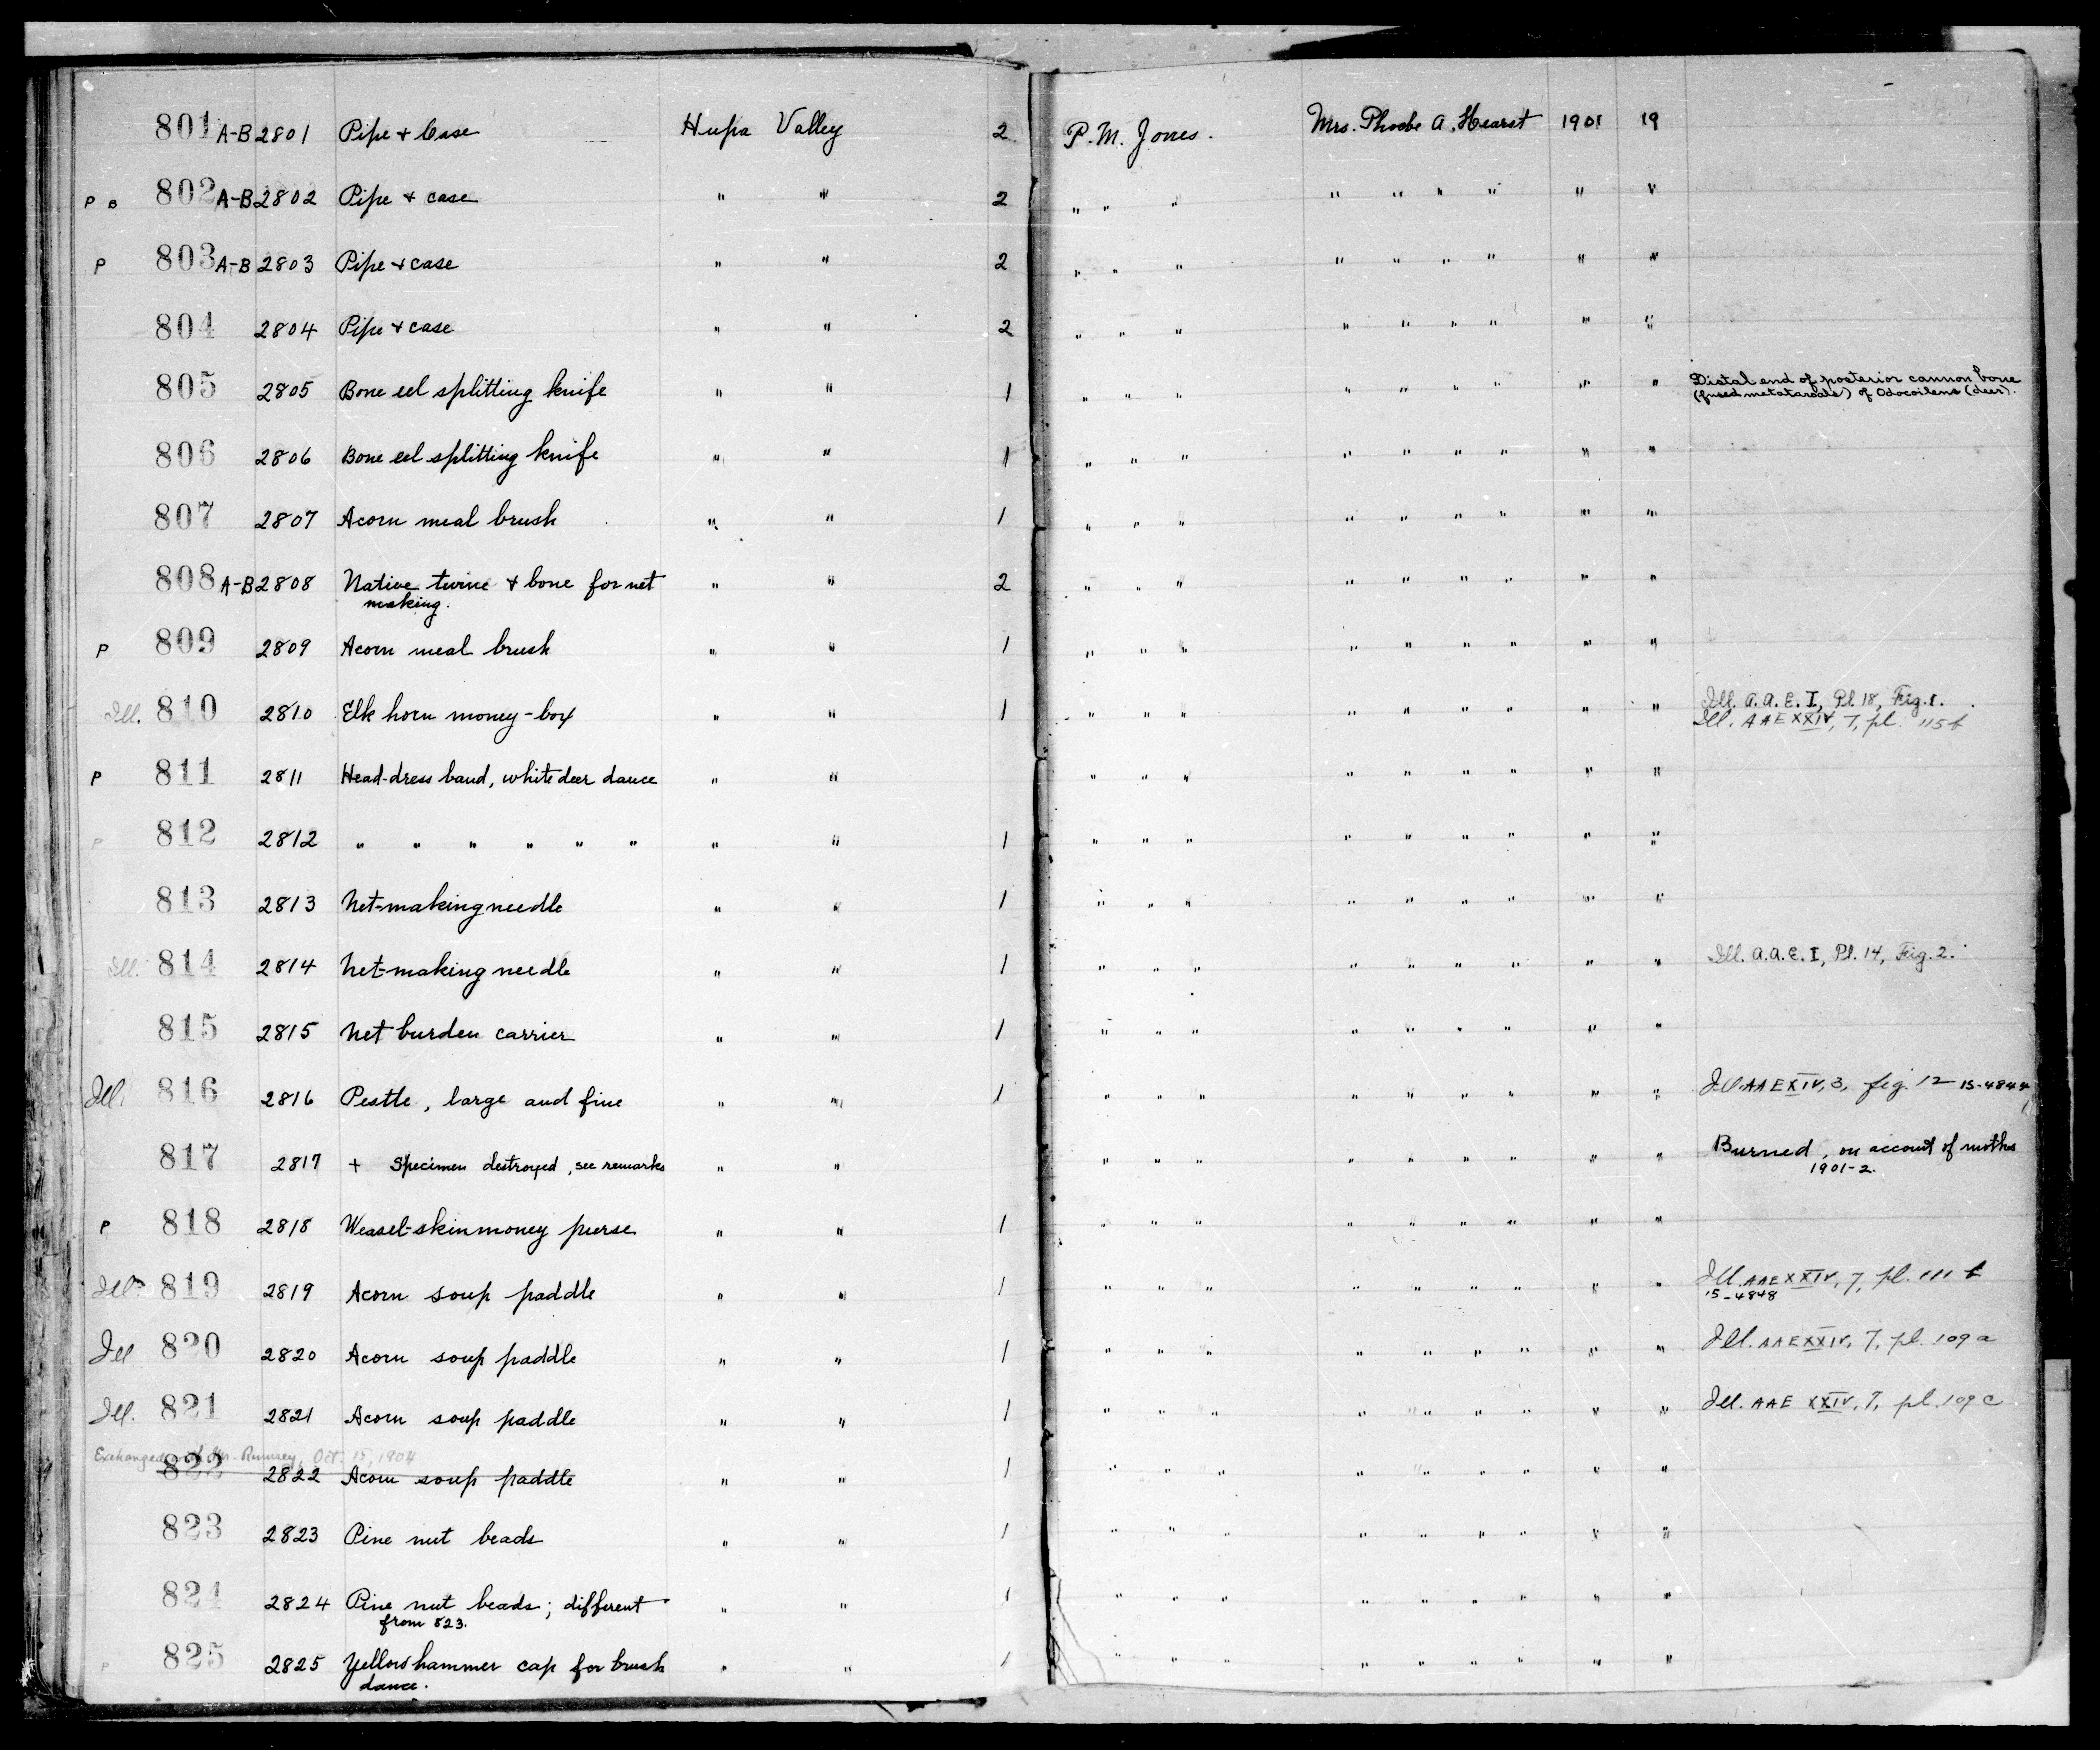 801 A-B 2801 Pipe + Case Hupa Valley 2 P. M. Jones. Mrs. Phoebe A. Hearst 1901 19
P B 802 A-B 2802 Pipe + case " " 2 " " " " " " " " "
P 803 A-B 2803 Pipe + case " " 2 " " " " " " " " "
804 2804 Pipe + case " " 2 " " " " " " " " "
805 2805 Bone eel splitting knife " " 1 " " " " " " " " " Distal end of posterior cannon bone
(fused metatarsals) of Odocoileus (deer).
806 2806 Bone eel splitting knife " " 1 " " " " " " " " "
807 2807 Acorn meal brush " " 1 " " " " " " " " "
808 A-B 2808 Native twine + bone for net " " 2 " " " " " " " " "
making.
P 809 2809 Acorn meal brush " " 1 " " " " " " " " "
Ill. 810 2810 Elk horn money-box " " 1 " " " " " " " " " Ill. A.A.E. I, Pl. 18, Fig. 1.
Ill. AAE XXIV, 7, pl. 115 b
P 811 2811 Head-dress band, white deer dance " " " " " " " " " " "
P 812 2812 " " " " " " " " 1 " " " " " " " " "
813 2813 Net-making needle " " 1 " " " " " " " " "
Ill. 814 2814 Net-making needle " " 1 " " " " " " " " " Ill. A.A.E. I, Pl. 14, Fig. 2.
815 2815 Net burden carrier " " 1 " " " " " " " " "
Ill. 816 2816 Pestle, large and fine " " 1 " " " " " " " " " Ill. AAE XIV, 3, fig. 12 15-4844
817 2817 + Specimen destroyed, see remarks " " " " " " " " " " " Burned, on account of moths
1901-2.
P 818 2818 Weasel-skin money purse " " 1 " " " " " " " " "
Ill. 819 2819 Acorn soup paddle " " 1 " " " " " " " " " Ill. AAE XXIV, 7, pl. 111 b
15-4848
Ill 820 2820 Acorn soup paddle " " 1 " " " " " " " " " Ill. AAE XXIV, 7, pl. 109 a
Ill. 821 2821 Acorn soup paddle " " 1 " " " " " " " " " Ill. AAE XXIV, 7, pl. 109 c
Exchanged Rumsey, Oct. 15, 1904
822 2822 Acorn soup paddle " " 1 " " " " " " " " "
823 2823 Pine nut beads " " 1 " " " " " " " " "
824 2824 Pine nut beads; different " " 1 " " " " " " " " "
from 823.
P 825 2825 Yellowhammer cap for brush " " 1 " " " " " " " " "
dance.